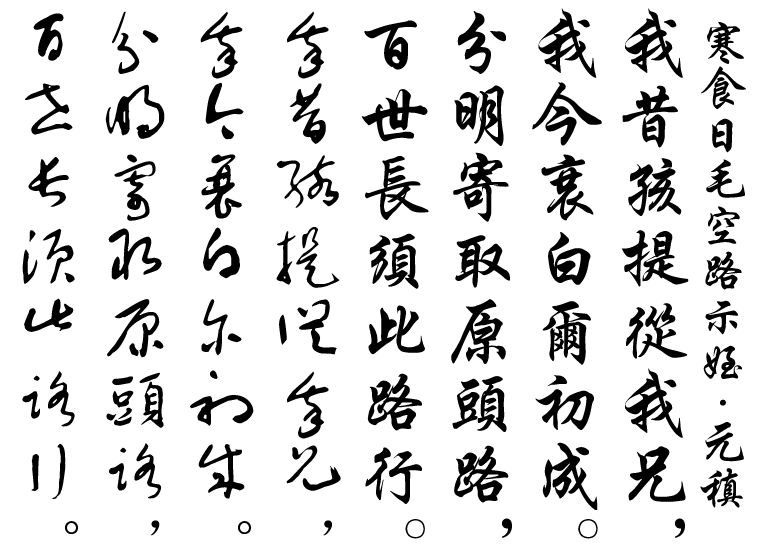 寒食日毛空路示姪・元稹
我昔孩提從我兄，
我今衰白爾初成。
分明寄取原頭路，
百世長須此路行。
我昔孩提從我兄，
我今衰白尔初成。
分明寄取原頭路，
百世長須此路行。